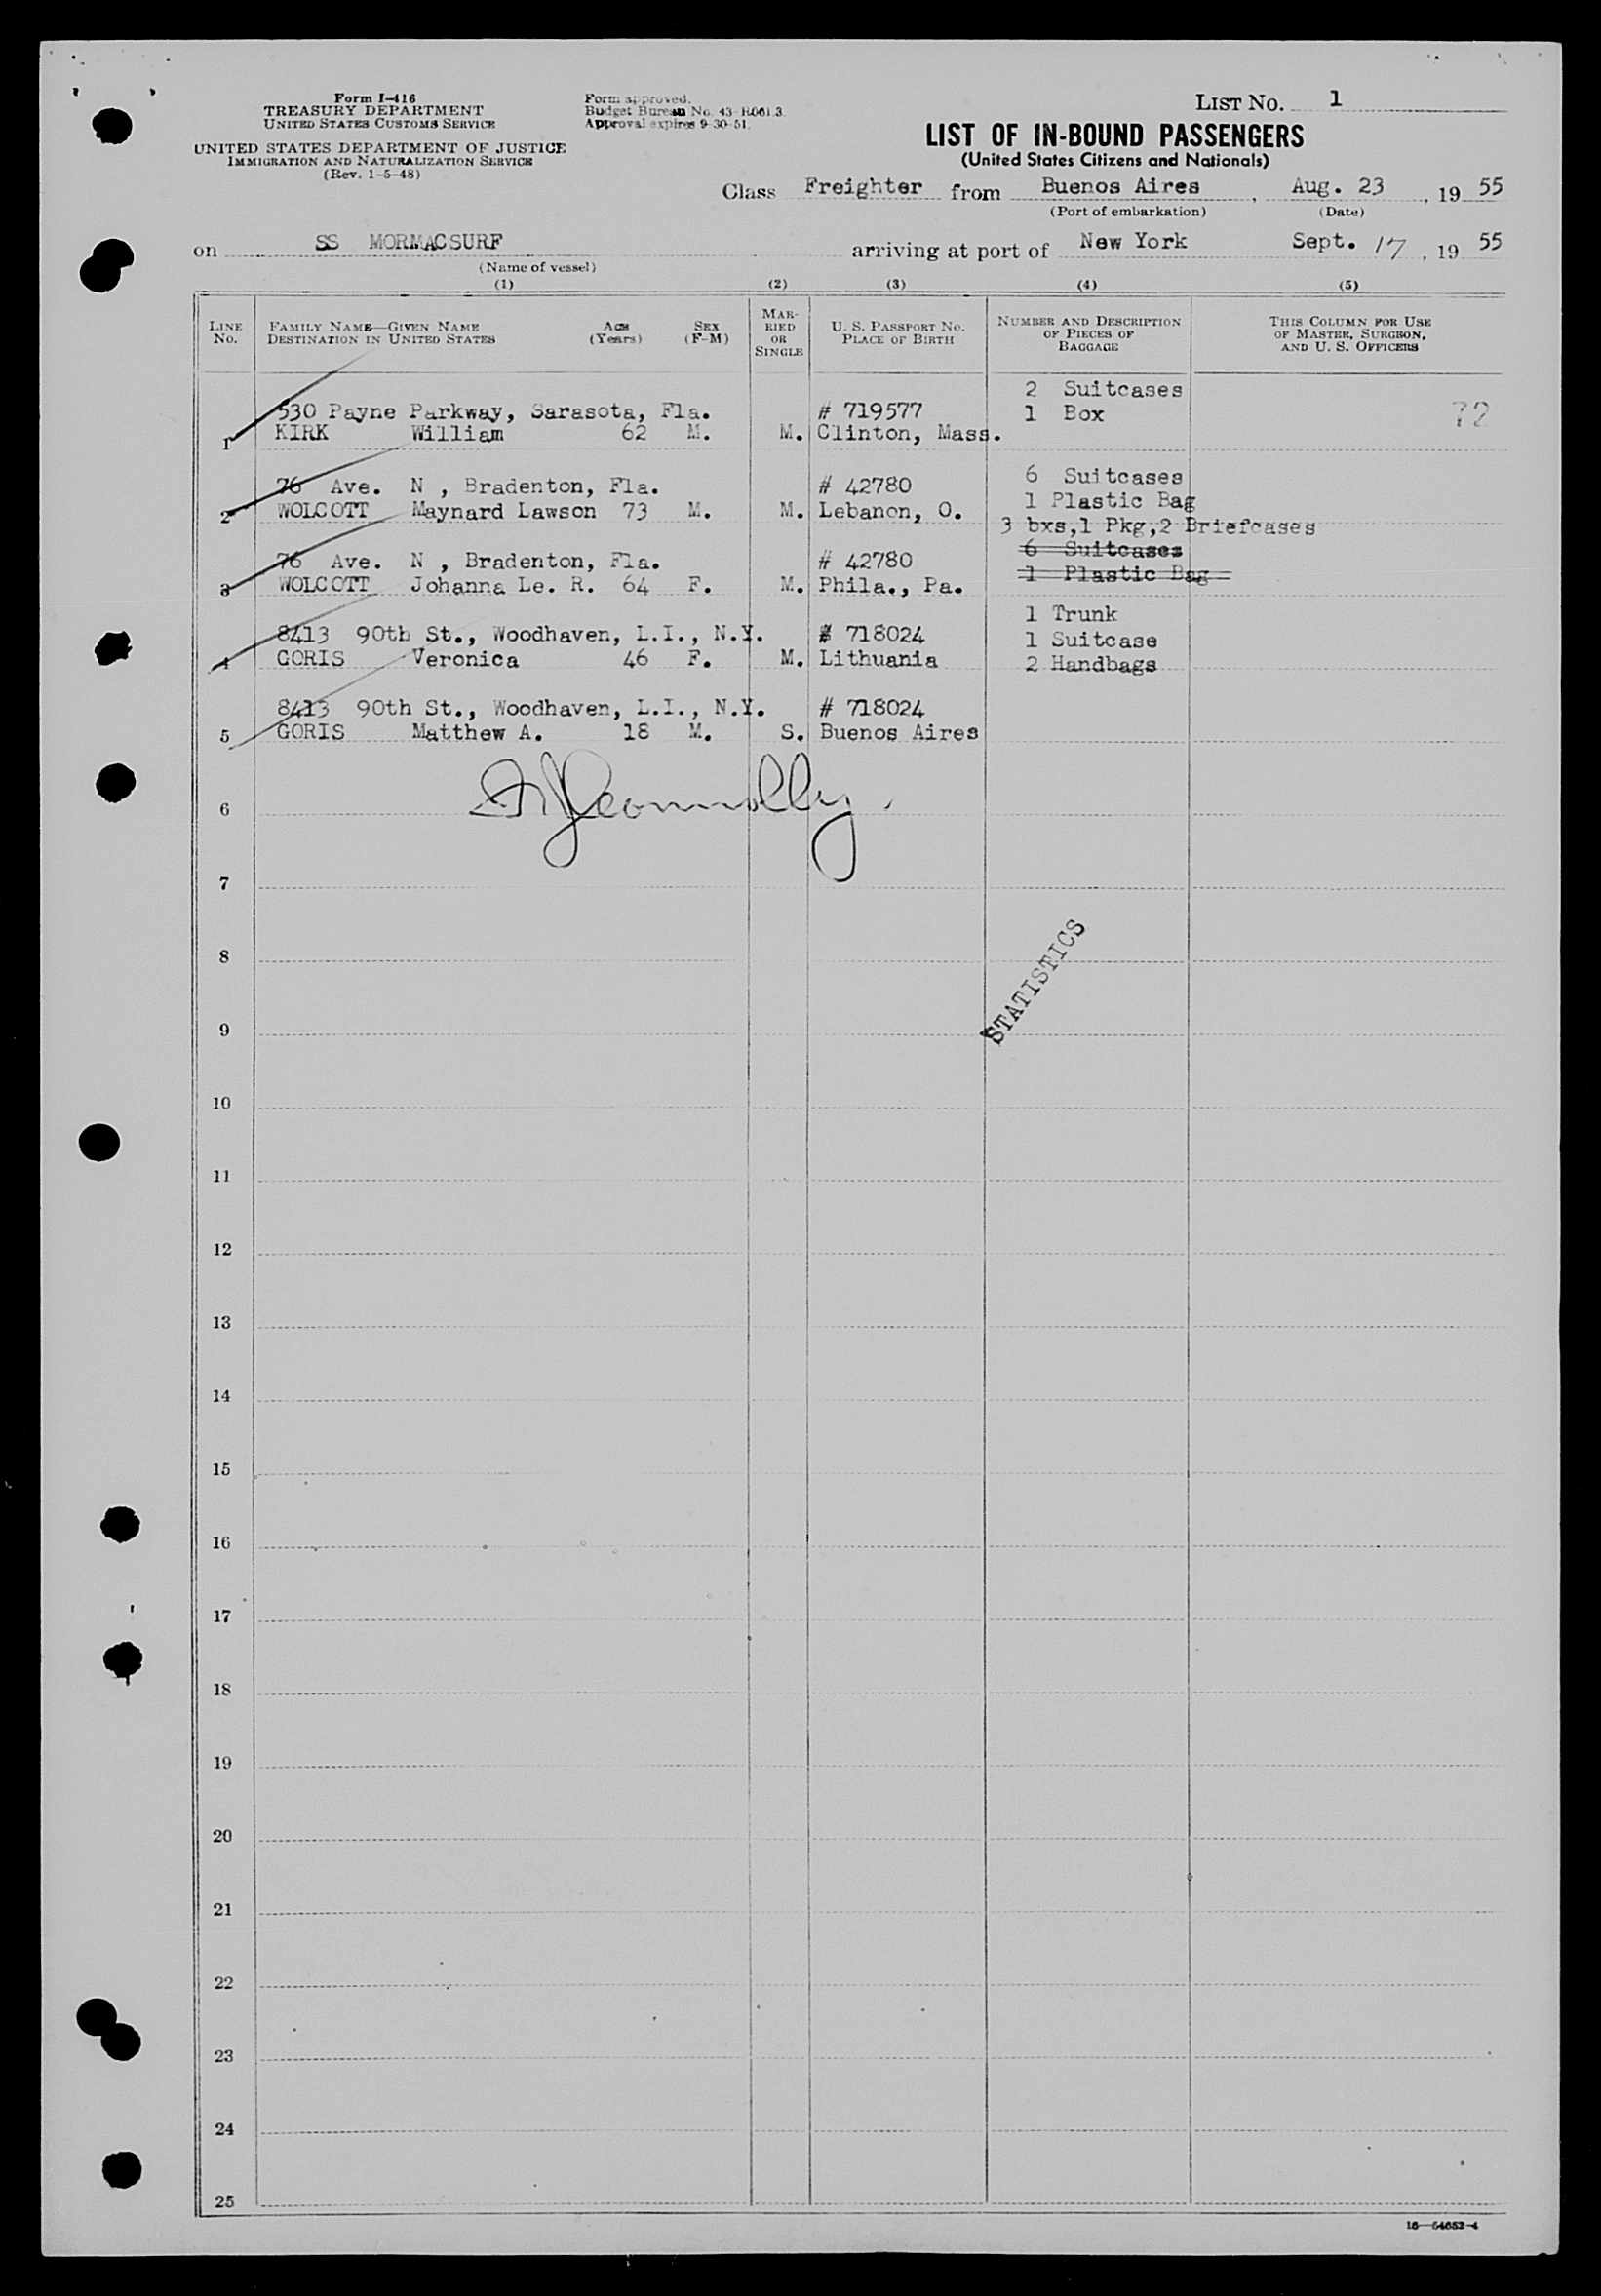 Form I-416
TREASURY DEPARTMENT
UNITED STATES CUSTOMS SERVICE
UNITED STATES DEPARTMENT OF JUSTICE
IMMIGRATION AND NATURALIZATION SERVICE
(Rev. 1-5-48)
Form approved.
Budget Bureau No. 43-R061.3.
Approval expires 9-30-51.
LIST NO. 1
LIST OF IN-BOUND PASSENGERS
(United States Citizens and Nationals)
Class Freighter from Buenos Aires, Aug. 23, 19 55
(Port of embarkation) (Date)
on SS MORMACSURF arriving at port of New York Sept. 17, 19 55
(Name of vessel)
(1) (2) (3) (4) (5)
LINE NO.
FAMILY NAME—GIVEN NAME
DESTINATION IN UNITED STATES
AGE (Years)
SEX (F-M)
MARRIED OR SINGLE
U. S. PASSPORT NO.
PLACE OF BIRTH
NUMBER AND DESCRIPTION OF PIECES OF BAGGAGE
THIS COLUMN FOR USE OF MASTER, SURGEON, AND U. S. OFFICERS
2 Suitcases
530 Payne Parkway, Sarasota, Fla. # 719577 1 Box 72
1 KIRK William 62 M. M. Clinton, Mass.
76 Ave. N , Bradenton, Fla. # 42780 6 Suitcases
1 Plastic Bag
2 WOLCOTT Maynard Lawson 73 M. M. Lebanon, O.
3 bxs,1 Pkg,2 Briefcases
76 Ave. N , Bradenton, Fla. # 42780 6 Suitcases
3 WOLCOTT Johanna Le. R. 64 F. M. Phila., Pa. 1 Plastic Bag
1 Trunk
8413 90th St., Woodhaven, L.I., N.Y. # 718024 1 Suitcase
4 GORIS Veronica 46 F. M. Lithuania 2 Handbags
8413 90th St., Woodhaven, L.I., N.Y. # 718024
5 GORIS Matthew A. 18 M. S. Buenos Aires
6
7
8
STATISTICS
9
10
11
12
13
14
15
16
17
18
19
20
21
22
23
24
25
16—54652-4